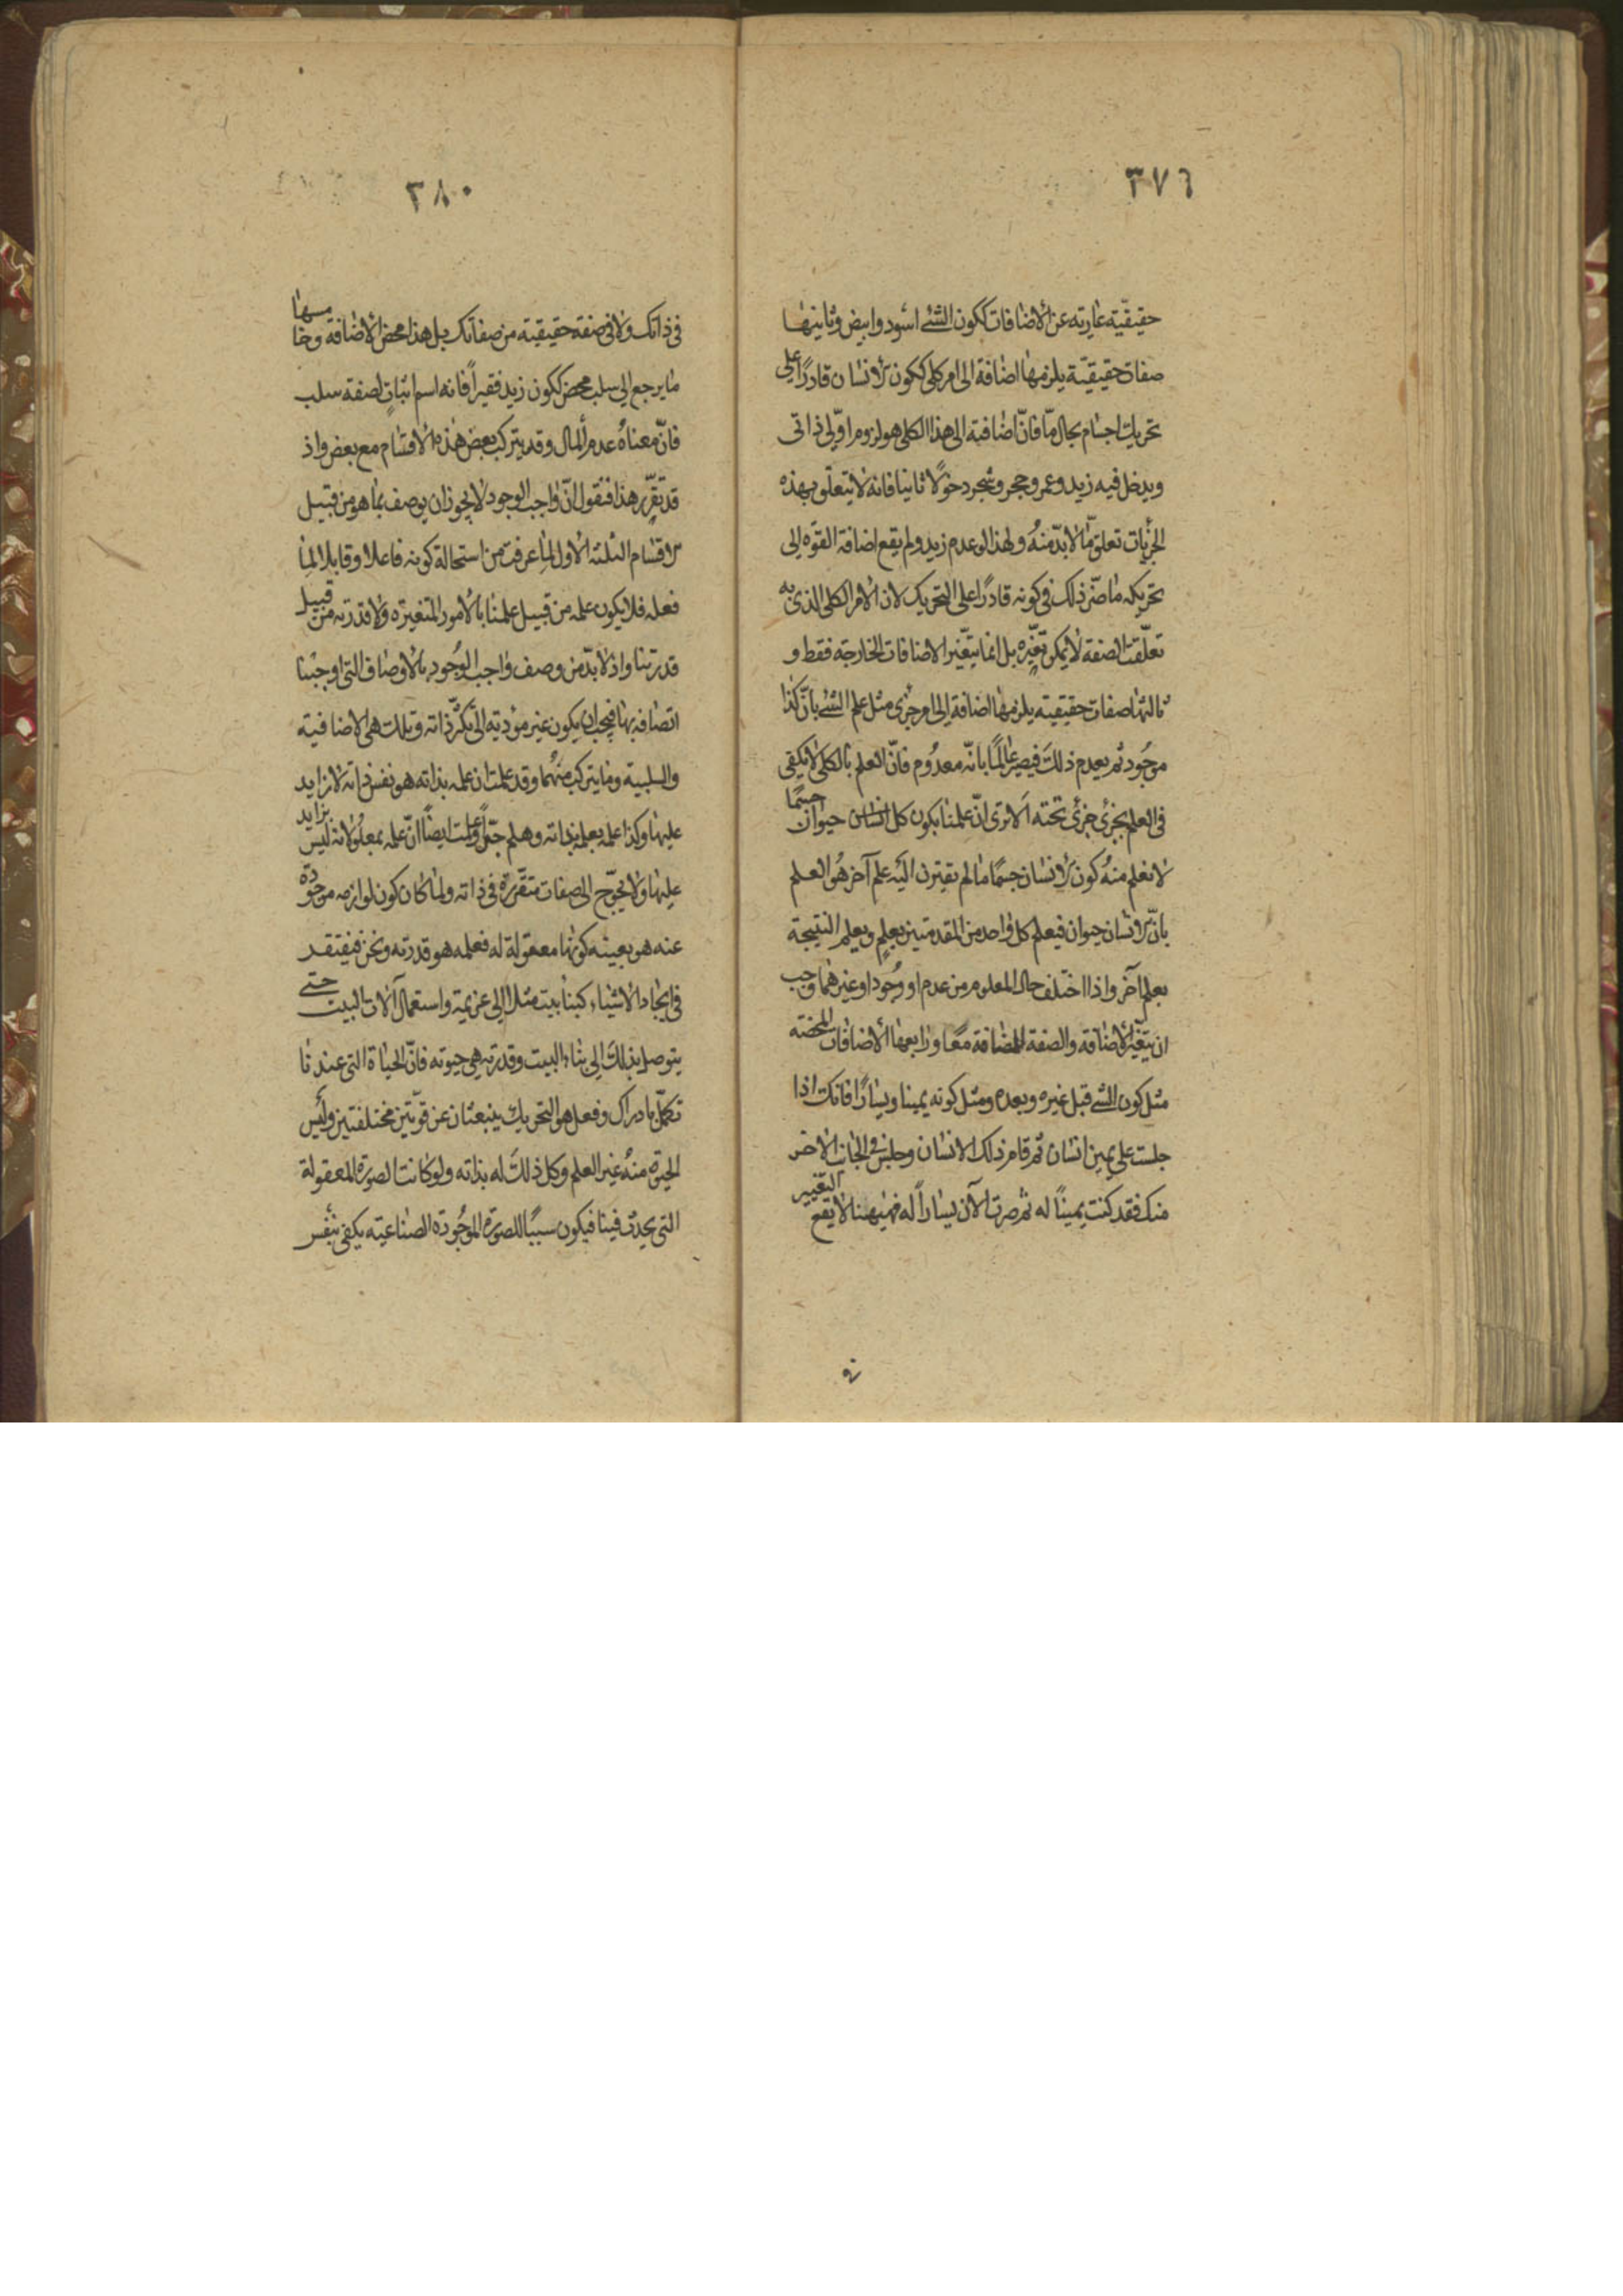 ٣٧٩
حقيقيّة عارية عن الاضافات ككون الشئ اسود وابيض وثانيها
صفات حقيقيّة يلزمها اضافة الى امر كلى ككون الانسان قادرًا على
تحريك اجسام بحال مّا فانّ اضافته الى هذا الكلى هو لزوم اوّلى ذاتى
ويدخل فيه زيد وعمرو وحجر وشجر دخولًا ثانيا فانه لا يتعلّق بهذه
الجزئيات تعلق مّا لا بدّ منه ولهذا لو عدم زيد ولم يقع اضافة القوّه الى
تحريكه ما ضرّ ذلك فى كونه قادرًا على التحريك لان الامر الكلى الذى به
تعلّقت الصفة لا يمكن تغيّره بل انما يتغيّر الاضافات الخارجة فقط و
ثالثها صفات حقيقيّه يلزمها اضافة الى امر جزئى مثل علم الشئ بانّ كذا
موجود ثم يعدم ذلك فيصير عالمًا بانّه معدوم فانّ العلم بالكلى لا يكفى
فى العلم بجزئى جزئى تحته الا ترى انّ علمنا بكون كل انسان حيوان جسمًا
لا نعلم منه كون الانسان جسمًا ما لم يقترن اليه علم آخر هو العلم
بانّ الانسان حيوان فيعلم كل واحد من المقدمتين بعلم ويعلم النتيجة
بعلم آخر واذا اختلف حال المعلوم من عدم او وجود او غيرهما وجب
ان يتغيّر الاضافة والصفة المضافة معًا ورابعها الاضافات المحضة
مثل كون الشئ قبل غيره وبعده ومثل كونه يمينا ويسارًا فانك اذا
جلست على يمين انسان ثم قام ذلك الانسان وجلس فى الجانب الاخر
منك فقد كنت يمينًا له ثم صرت الآن يسارًا له فههنا لا يقع التغيير
فى
٣٨٠
فى ذاتك ولا فى صفة حقيقية من صفاتك بل هذا محض الاضافة وخامسها
ما يرجع الى سلب محض ككون زيد فقيرًا فانه اسم اثبات لصفة سلب
فانّ معناه عدم المال وقد يتركب بعض هذه الاقسام مع بعض واذ
قد تقرّر هذا فنقول انّ واجب الوجود لا يجوز ان يوصف بما هو من قبيل
الاقسام الثلثة الاول لما عرفت من استحالة كونه فاعلا وقابلا لما
فعله فلا يكون علمه من قبيل علمنا بالامور المتغيرة ولا قدرته من قبيل
قدرتنا واذ لا بدّ من وصف واجب الوجود بالاوصاف التى اوجبنا
اتصافه بها فيجب ان يكون غير مؤدية الى تكثّر ذاته وتلك هى الاضافية
والسلبية وما يتركب منهما وقد علمت ان علمه بذاته هو نفس ذاته لا زايد
عليها وكذا علمه بعلمه بذاته وهلم جرّا وعلمت ايضًا انّ علمه بمعلولاته ليس بزايد
عليها ولا يحوّج الى صفات متقرّرة فى ذاته ولما كان كون لوازمه موجودة
عنه هو بعينه كونها معقولة له فعلمه هو قدرته ونحن فنفتقر
فى ايجاد الاشياء كبنا بيت مثلا الى عزيمة واستعمال آلات البيت حتى
يتوصل بذلك الى بناء البيت وقدرته هى حيوته فانّ الحياة التى عندنا
تكمل بادراك وفعل هو التحريك ينبعثان عن قوّتين مختلفتين وليس
الحيوة منه غير العلم وكل ذلك له بذاته ولو كانت الصورة المعقولة
التى يحدث فينا فيكون سببًا للصورة الموجودة الصناعية يكفى بنفس